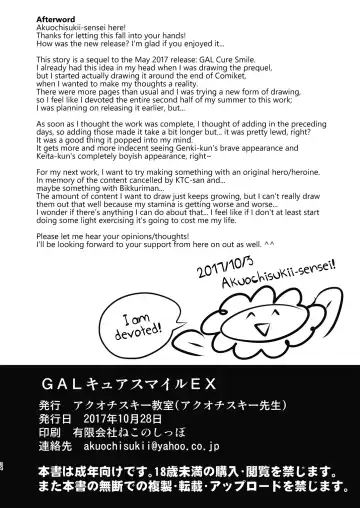 Afterword
Akuochisukii-sensei here!
Thanks for letting this fall into your hands!
How was the new release? I'm glad if you enjoyed it...
This story is a sequel to the May 2017 release: GAL Cure Smile.
I already had this idea in my head when I was drawing the prequel,
but I started actually drawing it around the end of Comiket,
when I wanted to make my thoughts a reality.
There were more pages than usual and I was trying a new form of drawing,
so I feel like I devoted the entire second half of my summer to this work;
I was planning on releasing it earlier, but...
As soon as I thought the work was complete, I thought of adding in the preceding
days, so adding those made it take a bit longer but... it was pretty lewd, right?
It was a good thing it popped into my mind.
It gets more and more indecent seeing Genki-kun's brave appearance and
Keita-kun's completely boyish appearance, right~
For my next work, I want to try making something with an original hero/heroine.
In memory of the content cancelled by KTC-san and...
maybe something with Bikkuriman...
The amount of content I want to draw just keeps growing, but I can't really draw
them out that well because my stamina is getting worse and worse...
I wonder if there's anything I can do about that... I feel like if I don't at least start
doing some light exercising it's going to cost me my life.
Please let me hear your opinions/thoughts!
I'll be looking forward to your support from here on out as well. ^^
2017/10/3
Akuochisukii-sensei!
I am
devoted!
GALキュアスマイルEX
発行 アクオチスキー教室(アクオチスキー先生)
発行日 2017年10月28日
印刷 有限会社ねこのしっぽ
連絡先 akuochisukii@yahoo.co.jp
本書は成年向けです。18歳未満の購入・閲覧を禁じます。
また本書の無断での複製・転載・アップロードを禁じます。